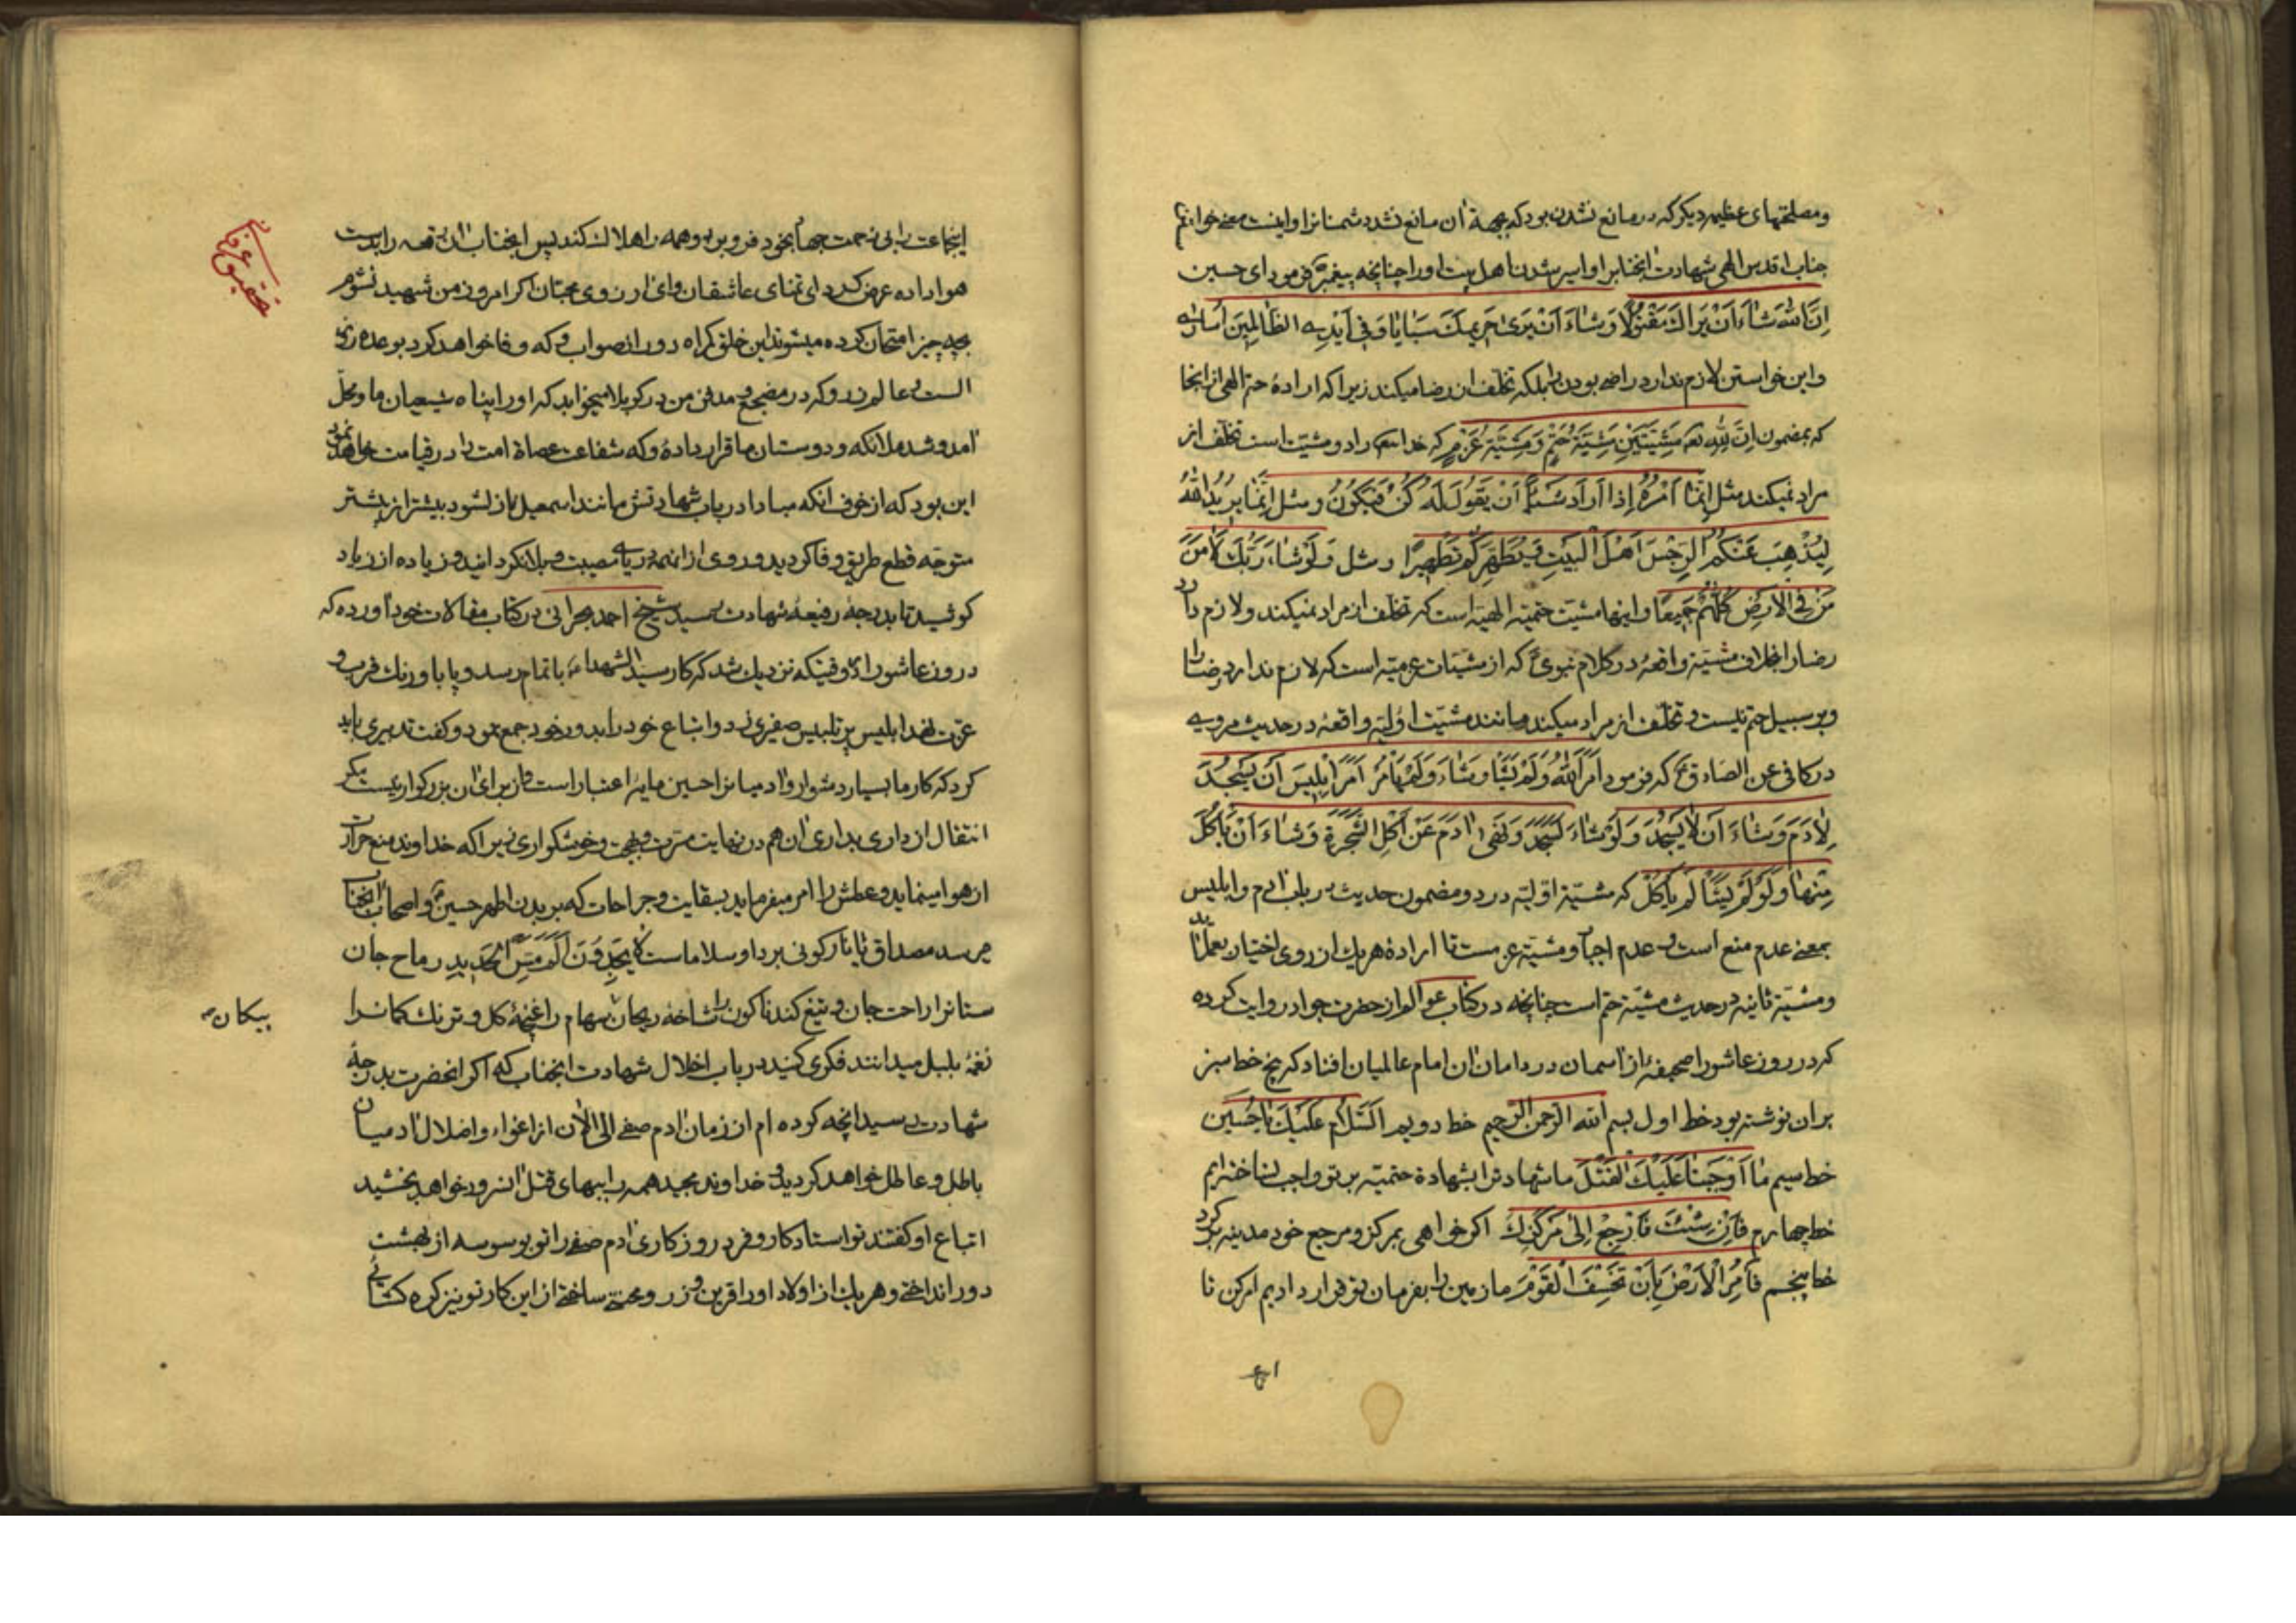 ومصلحتهای عظیمه دیگر که در مانع نشدن بود که بجهة آن مانع نشد دشمنانرا و اینست معنی خواستن
جناب اقدس الهی شهادت آنجناب را و اسیر شدن اهل بیت او را چنانچه پیغمبر ص فرمود ای حسین
اِنَّ اللهَ شاءَ اَنْ یَراكَ مَقْتُولاً وَ شاءَ اَنْ یَری حَریمَكَ سَبایا وَ فی اَیْدِی الظّالِمینَ اُساری
و این خواستن لازم ندارد راضی بودن را بلکه تخلف از رضا میکند زیرا که اراده حتم الهی از آنجا
که بمضمون اِنَّ لِلّهِ تعه مَشِیَّتَیْنِ مَشِیَّةُ حَتْمٍ وَ مَشِیَّةُ عَزْمٍ که خدایتعه را دو مشیت است تخلف از
مراد نمیکند مثل اِنَّما اَمْرُهُ اِذا اَرادَ شَیْئاً اَنْ یَقُولَ لَهُ کُنْ فَیَکُونُ و مثل اِنَّما یُریدُ اللهُ
لِیُذْهِبَ عَنْکُمُ الرِّجْسَ اَهْلَ الْبَیْتِ وَ یُطَهِّرَکُمْ تَطْهیراً و مثل وَ لَوْ شاءَ رَبُّكَ لَاٰمَنَ
مَنْ فِی الْاَرْضِ کُلُّهُمْ جَمیعاً و اینها مشیت حتمیه الهیه است که تخلف از مراد نمیکند و لازم دارد
رضا را بخلاف مشیّة واقعهٔ در کلام نبوی ص که از مشیّات عزمیّه است که لازم ندارد رضا را
و بر سبیل حتم نیست و تخلف از مراد میکند و مانند مشیّت اوّلیّه واقعهٔ در حدیث مرویه
در کافی عن الصادق ع که فرمود اَمَرَ اللهُ وَ لَمْ یَشَأْ وَ شاءَ وَ لَمْ یَأْمُرْ اَمَرَ اِبْلیسَ اَنْ یَسْجُدَ
لِاٰدَمَ وَ شاءَ اَنْ لا یَسْجُدَ وَ لَوْ شاءَ لَسَجَدَ وَ نَهی اٰدَمَ عَنْ اَکْلِ الشَّجَرَةِ وَ شاءَ اَنْ یَأْکُلَ
مِنْها وَ لَوْ لَمْ یَشَأْ لَمْ یَأْکُلْ که مشیّة اوّلیّه در دو مضمون حدیث در باب آدم و ابلیس
بمعنی عدم منع است و عدم اجبار و مشیّة عزمست تا اراده هر یك از روی اختیار بعمل آید
و مشیّة ثانیه در حدیث مشیّة حتم است چنانچه در کتاب عوالم از حضرت جواد روایت کرده
که در روز عاشورا صحیفهٔ از آسمان در دامان آن امام عالمیان افتاد که پنج خط سبز
بر آن نوشته بود خط اول بسم الله الرحمن الرحیم خط دویم اَلسَّلامُ عَلَیْكَ یا حُسَیْن
خط سیم ما اَوْجَبْنا عَلَیْكَ الْقَتْلَ ما شهادت را بشهادة حتمیّه بر تو واجب نساخته‌ایم
خط چهارم فَاِنْ شِئْتَ فَارْجِعْ اِلی مَرْکَزِكَ اگر خواهی بمرکز و مرجع خود مدینه برگرد
خط پنجم فَأْمُرِ الْاَرْضَ بِاَنْ تَخْسِفَ الْقَوْمَ ما زمین را بفرمان تو قرار دادیم امر کن تا
اینجماعت را بی زحمت جهاد بخود فرو برد و همه را هلاك کند پس آنجناب آن رقعه را بدست
هوا داده عرض کرد ای تمنای عاشقان و ای آرزوی محبّان اگر امروز من شهید نشوم
بچه چیز امتحان کرده میشوند این خلق گمراه دور از صواب و که وفا خواهد کرد بوعده روز
الست و عالم ذر و که در مضجع و مدفن من در کربلا میخوابد که او را پناه شیعیان ما و محلّ
آمد و شد ملائکه و دوستان ما قرار دادهٔ و که شفاعت عصاة امت را در قیامت خواهد نمود
این بود که از خوف آنکه مبادا در باب شهادتش مانند اسمعیل باز نشود بیشتر از پیشتر
متوجه قطع طریق وفا گردید و روی از آنهمه دریای مصیبت و بلا نگردانید و زیاده از زیاد
کوشید تا بدرجهٔ رفیعهٔ شهادت رسید شیخ احمد بحرانی در کتاب مقالات خود آورده که
در روز عاشورا وقتیکه نزدیك شد که کار سید الشهداء ع باتمام رسد و پا باورنك قرب و
عزت نهد ابلیس پر تلبیس صفیری زد و اتباع خود را بدور خود جمع نمود و گفت تدبیری باید
کرد که کار ما بسیار دشوار و آدمیانرا حسین مایهٔ اعتبار است و از برای آن بزرگوار نیست مگر
انتقال از داری بداری آن هم در نهایت مسرت و بهجت و خوشگواری زیرا که خداوند منع حرارت
از هوا مینماید و عطش را امر میفرماید بسقایت و جراحات که بر بدن اطهر حسین ع و اصحاب آنجناب
میرسد مصداق یا نار کونی بردا و سلاما است لا یَجِدُونَ اَلَمَ مَسِّ الْحَدیدِ رماح جان
ستانرا راحت جان و تیغ کند ناگون را شاخهٔ ریحان سهام را غنچهٔ گل و ترنك کمانرا
پیکان
نغمهٔ بلبل میدانند فکری کنید در باب اخلال شهادت آنجناب که اگر آنحضرت بدرجهٔ
شهادت رسید آنچه کرده‌ام از زمان آدم صفی الی الآن از اغواء و اضلال آدمیان
باطل و عاطل خواهد گردید و خداوند مجید همه را ببهای قتل آنسرور خواهد بخشید
اتباع او گفتند تو استاد کار و فرد روزگاری آدم صفی را تو بوسوسه از بهشت
دور انداختی و هر یك از اولاد او را قرین وزر و محنتی ساختی از این کار تو نیز گره گشائی